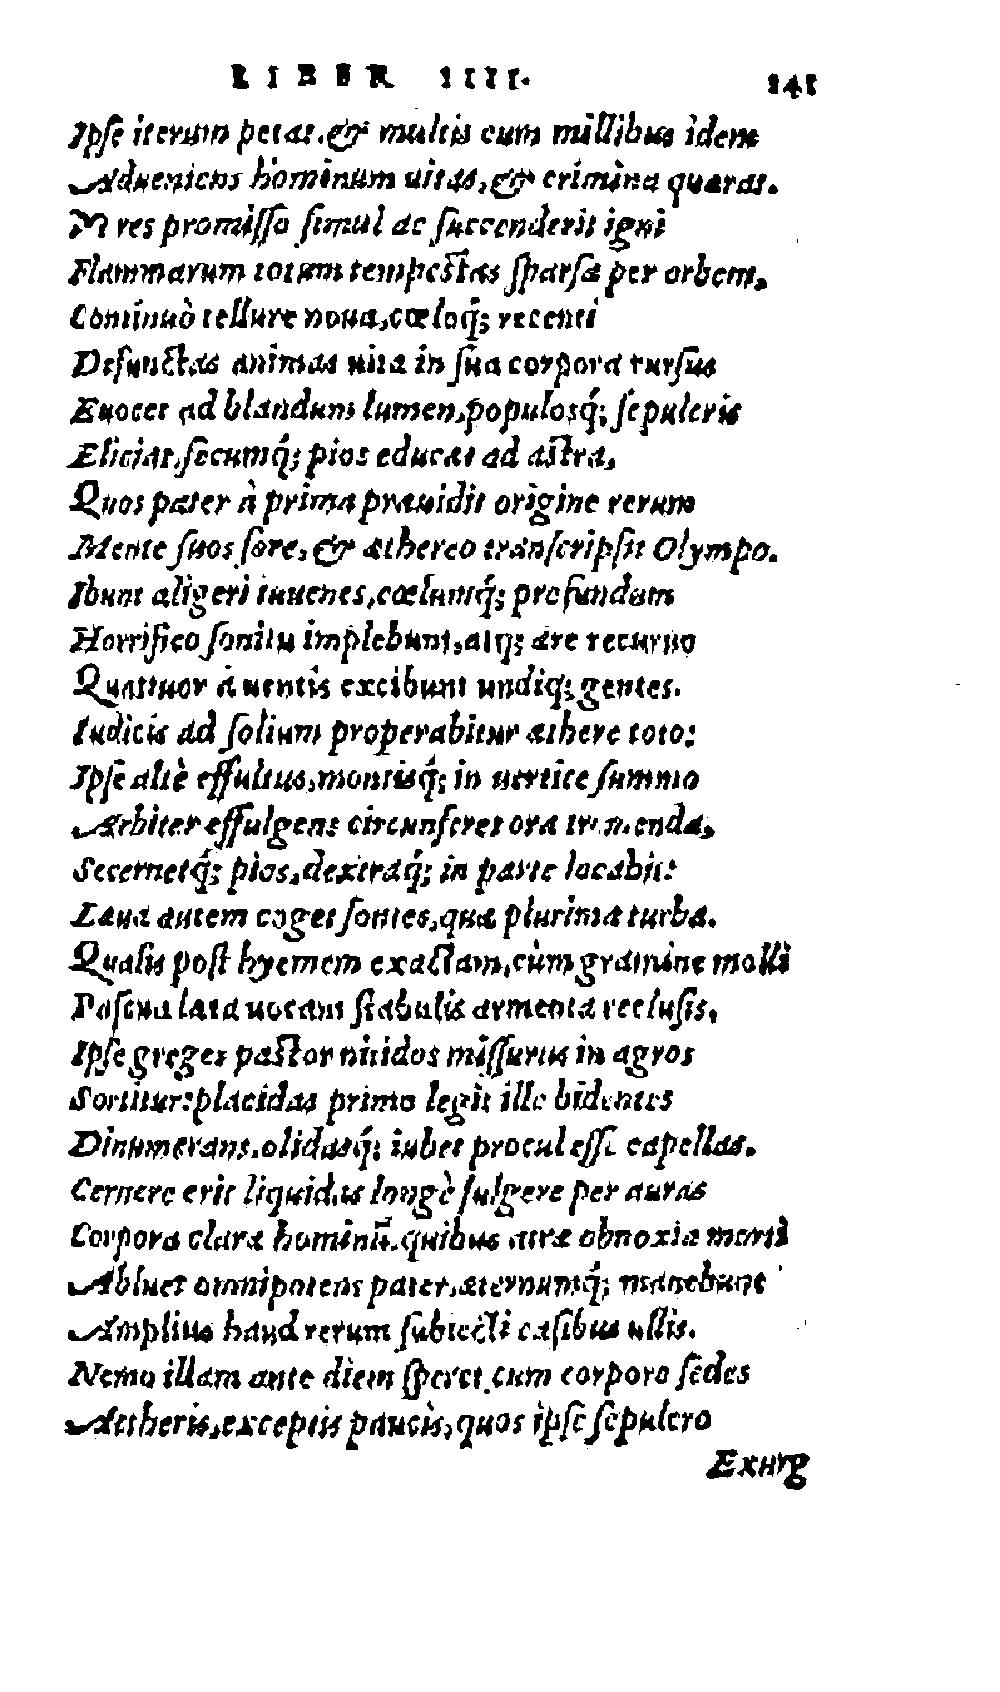 LIBER IIII. 141
Ipse iterum petat, & multis cum millibus idem
Adueniens hominum uitas, & crimina quærat.
Vt res promisso simul ac succenderit igni
Flammarum totum tempestas sparsa per orbem,
Continuò tellure noua, cœloq́; recenti
Defunctas animas uita in sua corpora rursus
Euocet ad blandum lumen, populosq́; sepulcris
Eliciat, secumq́; pios educat ad astra,
Quos pater à prima præuidit origine rerum
Mente suos fore, & æthereo transcripsit Olympo.
Ibunt aligeri iuuenes, cœlumq́; profundum
Horrifico sonitu implebunt, atq; ære recuruo
Quattuor à uentis excibunt undiq; gentes.
Iudicis ad solium properabitur æthere toto:
Ipse altè effultus, montisq́; in uertice summo
Arbiter effulgens circunferet ora tremenda,
Secernetq́; pios, dextraq́; in parte locabit:
Læua autem coget sontes, quæ plurima turba.
Qualis post hyemem exactam, cùm gramine molli
Pascua læta uocant stabulis armenta reclusis,
Ipse greges pastor nitidos missurus in agros
Sortitur: placidas primo legit ille bidentes
Dinumerans, olidasq́; iubet procul esse capellas.
Cernere erit liquidas longè fulgere per auras
Corpora clara hominũ, quibus atræ obnoxia morti
Abluet omnipotens pater, æternumq́; manebunt
Amplius haud rerum subiecti casibus ullis.
Nemo illam ante diem speret cum corpore sedes
Aetheris, exceptis paucis, quos ipse sepulcro
Exurg